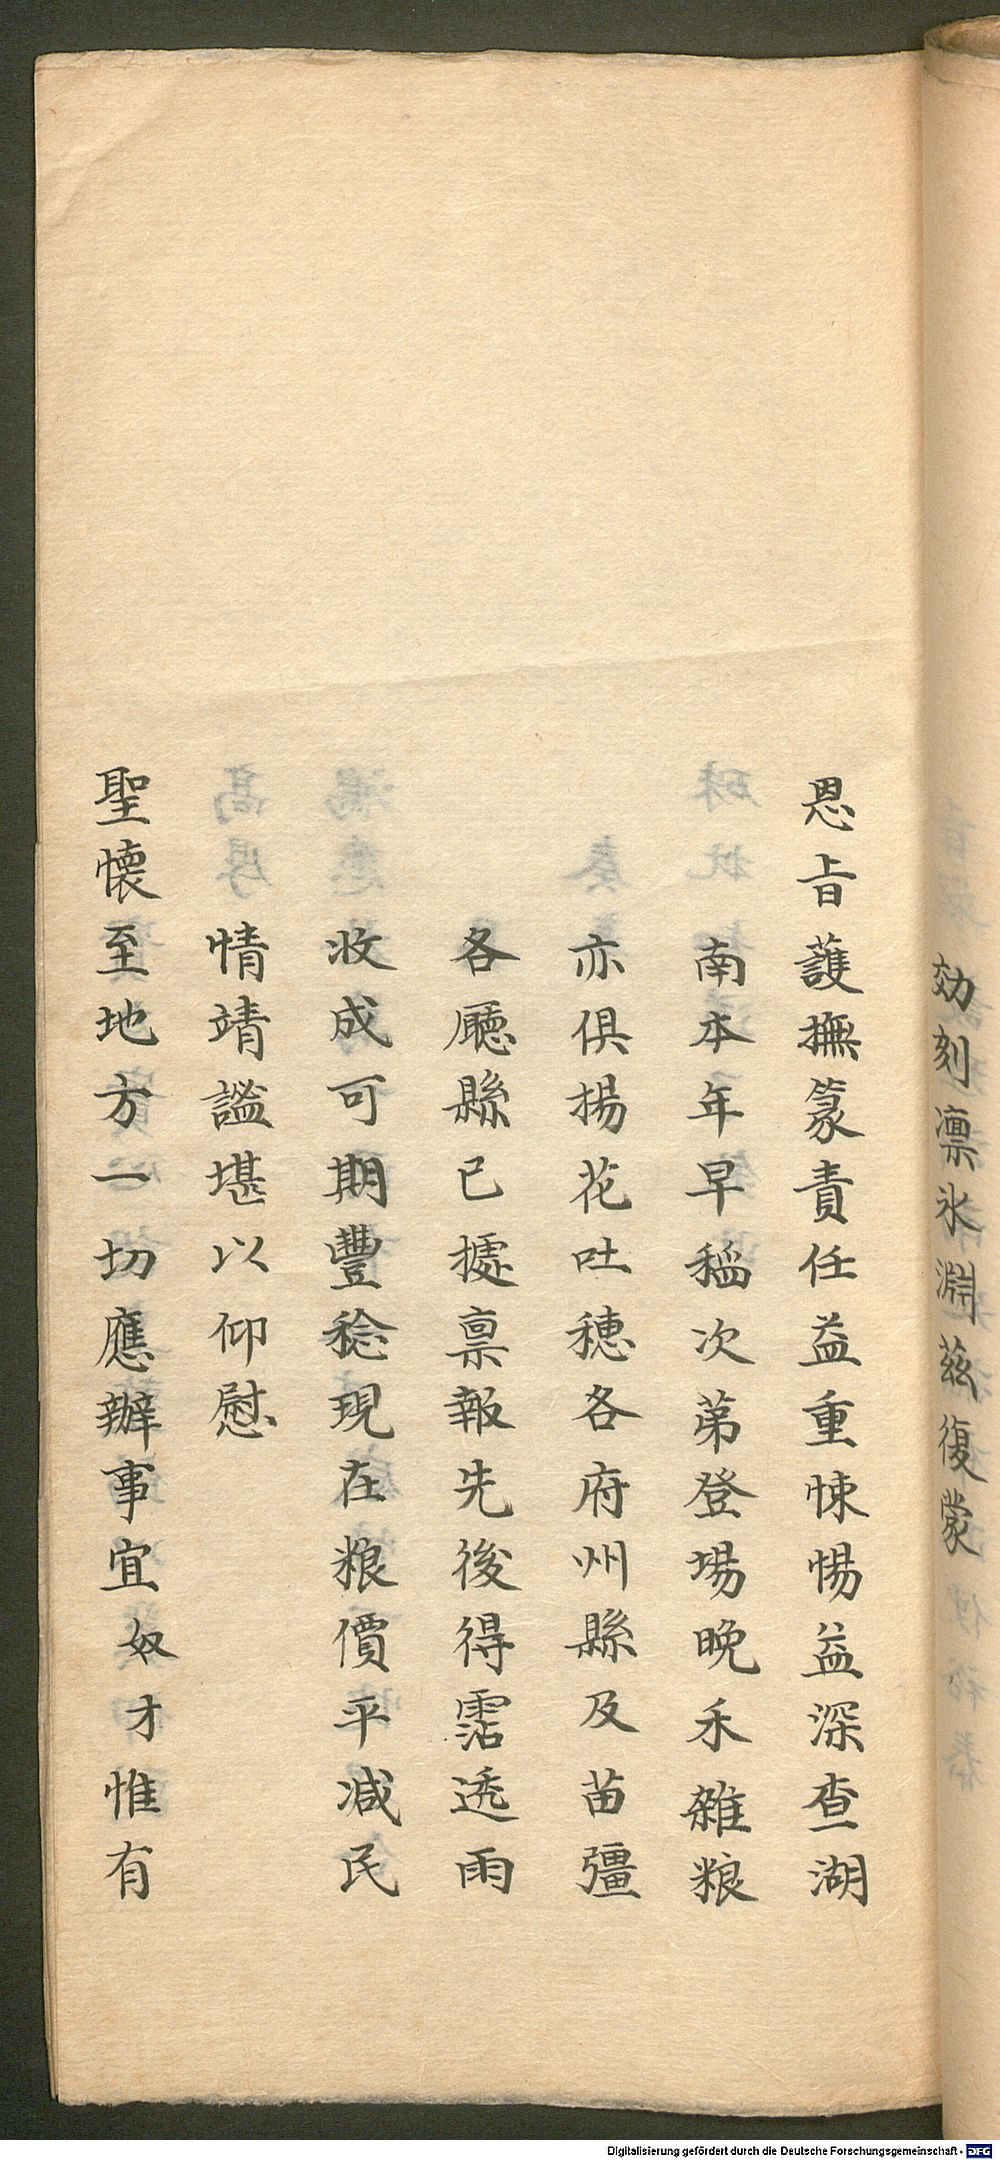 効刻凛氷淵茲復蒙
恩旨護撫篆責任益重悚惕益深查湖
南本年早稻次苐登場晚禾雜粮
亦俱揚花吐穗各府州縣及苗疆
各廳縣已據禀報先後得霑透雨
收成可期豐稔現在粮價平减民
情靖謐堪以仰慰
聖懷至地方一切應辦事宜奴才惟有
Digitalisierung gefördert durch die Deutsche Forschungsgemeinschaft - DFG